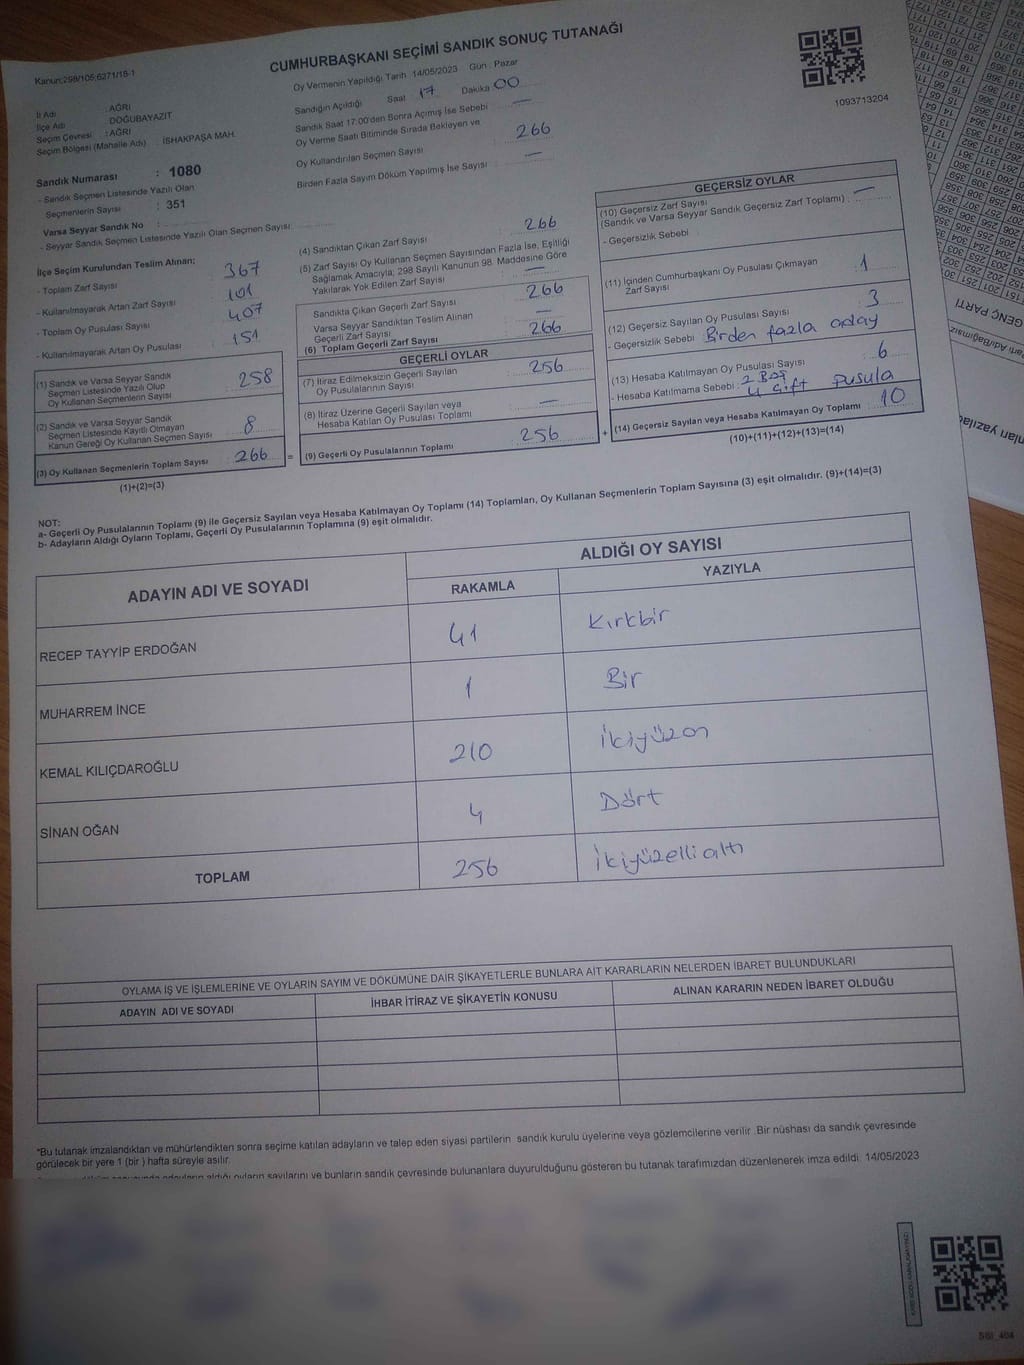 CUMHURBAŞKANI SEÇİMİ SANDIK SONUÇ TUTANAĞI
Kanun:298/105,6271/18-1
1093713204
İl Adı : AĞRI
İlçe Adı : DOĞUBAYAZIT
Seçim Çevresi : AĞRI
Seçim Bölgesi (Mahalle Adı) : İSHAKPAŞA MAH.
Sandık Numarası : 1080
- Sandık Seçmen Listesinde Yazılı Olan
Seçmenlerin Sayısı : 351
Varsa Seyyar Sandık No :
- Seyyar Sandık Seçmen Listesinde Yazılı Olan Seçmen Sayısı
Oy Vermenin Yapıldığı Tarih 14/05/2023 Gün : Pazar
Sandığın Açıldığı Saat 17 Dakika 00
Sandık Saat 17:00'den Sonra Açımış İse Sebebi —
Oy Verme Saati Bitiminde Sırada Bekleyen ve
Oy Kullandırılan Seçmen Sayısı 266
Birden Fazla Sayım Döküm Yapılmış İse Sayısı —
İlçe Seçim Kurulundan Teslim Alınan:
- Toplam Zarf Sayısı 367
- Kullanılmayarak Artan Zarf Sayısı 101
- Toplam Oy Pusulası Sayısı 407
- Kullanılmayarak Artan Oy Pusulası 151
(1) Sandık ve Varsa Seyyar Sandık
Seçmen Listesinde Yazılı Olup
Oy Kullanan Seçmenlerin Sayısı 258
(2) Sandık ve Varsa Seyyar Sandık
Seçmen Listesinde Kayıtlı Olmayan
Kanun Gereği Oy Kullanan Seçmen Sayısı 8
(3) Oy Kullanan Seçmenlerin Toplam Sayısı 266
(1)+(2)=(3)
(4) Sandıktan Çıkan Zarf Sayısı 266
(5) Zarf Sayısı Oy Kullanan Seçmen Sayısından Fazla İse, Eşitliği
Sağlamak Amacıyla, 298 Sayılı Kanunun 98. Maddesine Göre
Yakılarak Yok Edilen Zarf Sayısı —
Sandıkta Çıkan Geçerli Zarf Sayısı 266
Varsa Seyyar Sandıktan Teslim Alınan
Geçerli Zarf Sayısı —
(6) Toplam Geçerli Zarf Sayısı 266
GEÇERLİ OYLAR
(7) İtiraz Edilmeksizin Geçerli Sayılan
Oy Pusulalarının Sayısı 256
(8) İtiraz Üzerine Geçerli Sayılan veya
Hesaba Katılan Oy Pusulası Toplamı —
= (9) Geçerli Oy Pusulalarının Toplamı 256 +
GEÇERSİZ OYLAR
(10) Geçersiz Zarf Sayısı
(Sandık ve Varsa Seyyar Sandık Geçersiz Zarf Toplamı) : —
- Geçersizlik Sebebi :
(11) İçinden Cumhurbaşkanı Oy Pusulası Çıkmayan
Zarf Sayısı 1
(12) Geçersiz Sayılan Oy Pusulası Sayısı 3
- Geçersizlik Sebebi : Birden fazla aday
(13) Hesaba Katılmayan Oy Pusulası Sayısı 6
- Hesaba Katılmama Sebebi : 2 Boş
4 Çift Pusula
(14) Geçersiz Sayılan veya Hesaba Katılmayan Oy Toplamı 10
(10)+(11)+(12)+(13)=(14)
NOT:
a- Geçerli Oy Pusulalarının Toplamı (9) ile Geçersiz Sayılan veya Hesaba Katılmayan Oy Toplamı (14) Toplamları, Oy Kullanan Seçmenlerin Toplam Sayısına (3) eşit olmalıdır. (9)+(14)=(3)
b- Adayların Aldığı Oyların Toplamı, Geçerli Oy Pusulalarının Toplamına (9) eşit olmalıdır.
ADAYIN ADI VE SOYADI
ALDIĞI OY SAYISI
RAKAMLA YAZIYLA
RECEP TAYYİP ERDOĞAN 41 Kırkbir
MUHARREM İNCE 1 Bir
KEMAL KILIÇDAROĞLU 210 ikiyüzon
SİNAN OĞAN 4 Dört
TOPLAM 256 ikiyüzellialtı
OYLAMA İŞ VE İŞLEMLERİNE VE OYLARIN SAYIM VE DÖKÜMÜNE DAİR ŞİKAYETLERLE BUNLARA AİT KARARLARIN NELERDEN İBARET BULUNDUKLARI
ADAYIN ADI VE SOYADI İHBAR İTİRAZ VE ŞİKAYETİN KONUSU ALINAN KARARIN NEDEN İBARET OLDUĞU
*Bu tutanak imzalandıktan ve mühürlendikten sonra seçime katılan adayların ve talep eden siyasi partilerin sandık kurulu üyelerine veya gözlemcilerine verilir .Bir nüshası da sandık çevresinde
görülecek bir yere 1 (bir ) hafta süreyle asılır.
adayların aldığı oyların sayılarını ve bunların sandık çevresinde bulunanlara duyurulduğunu gösteren bu tutanak tarafımızdan düzenlenerek imza edildi. 14/05/2023
GENÇ PARTİ
SSI_404